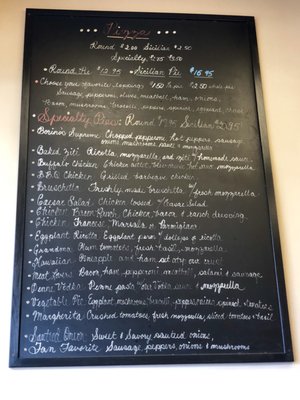 Pizza
Round $2.00 Sicilian $2.50
Specialty
• Round Pie $12.95 • Sicilian Pie $16.95
Choose your favorite toppings whole pie
Sausage, pepperoni, olives, meatball, ham, onions,
mushrooms, peppers, spinach,
Specialty Pies: Round Sicilian
Supreme Chopped pepperoni hot peppers sausage
onions mushrooms mozzarella
Baked Ziti Ricotta, mozzarella, and ziti w/ homemade sauce
Buffalo Chicken Chicken hot sauce mozzarella
B.B.Q. Chicken Grilled barbecue chicken
Bruschetta Freshly made bruschetta w/ fresh mozzarella
Caesar Salad Chicken tossed w/ Caesar Salad
Chicken Bacon Ranch Chicken, bacon & ranch dressing
Chicken Francese, Marsala or Parmigian
Eggplant Ricotta Eggplant parm w/ dollops of ricotta
Grandma Plum tomatoes, fresh basil, mozzarella
Hawaiian Pineapple and ham
Meat Lovers Bacon, ham, pepperoni, meatball, salami & sausage
Penne Vodka Penne pasta vodka sauce & mozzarella
Vegetable Pie Eggplant, mushrooms, broccoli, peppers, onions, spinach, & tomatoes
Margherita Crushed tomatoes, fresh mozzarella, sliced tomatoes & basil
Sautéed Onion Sweet & Savory sautéed onions,
Fan Favorite Sausage, peppers, onions & mushrooms